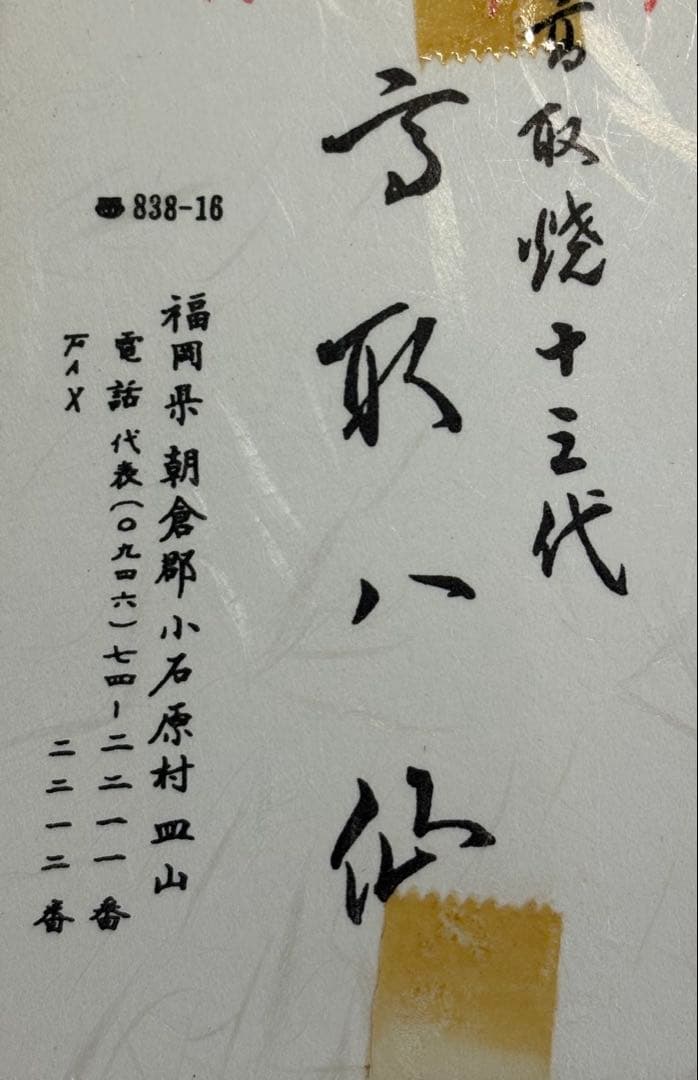 高取焼十三代
高取八仙
838-16
福岡県朝倉郡小石原村皿山
電話代表(〇九四六)七四-二二一一番
FAX 二二一二番